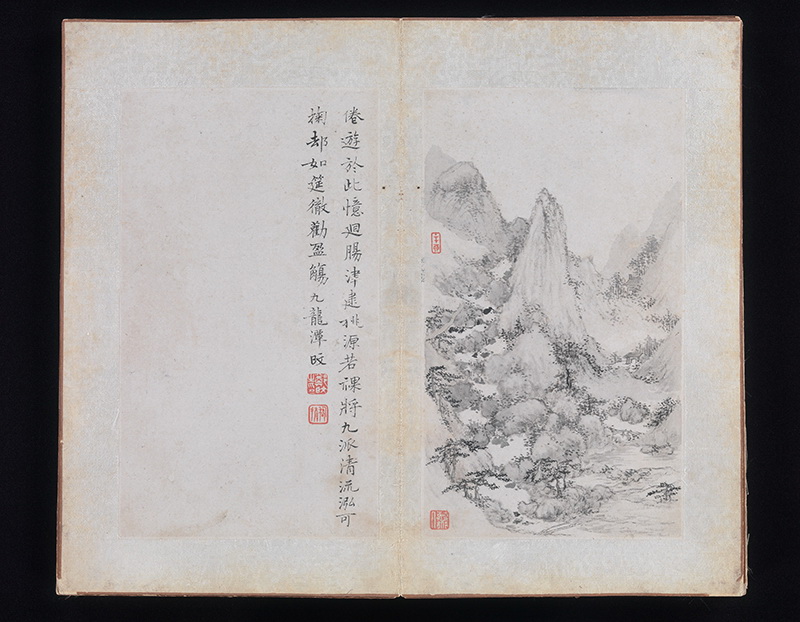 倦遊於此憶迴腸津逮桃源若祼將九派清流泓可
掬却如筵徹勸盈觴九龍潭旼